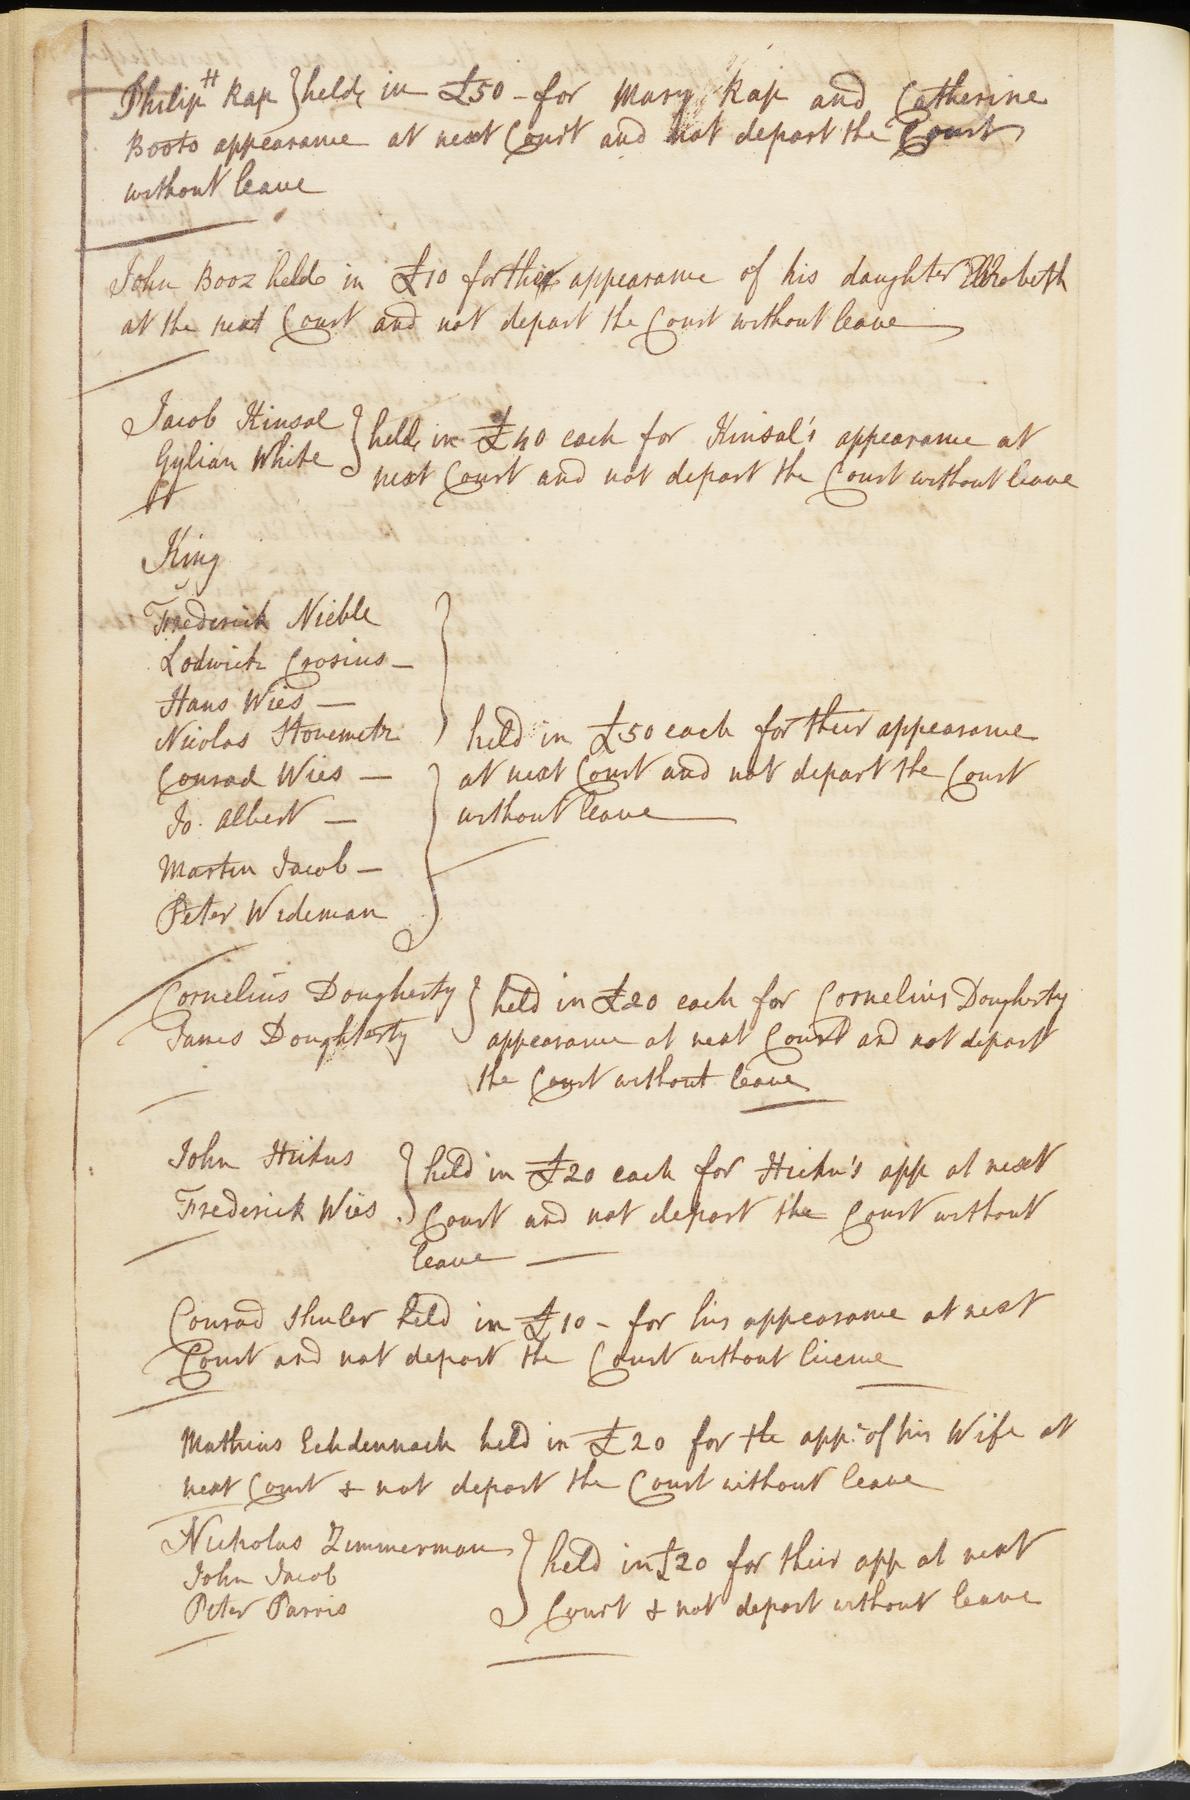 Philip H Kap } held in £50 - for Mary Kap and Catherine
Boots appearance at next Court and not depart the Court
without leave
John Booz held in £10 for the appearance of his daughter Elizabeth
at the next Court and not depart the Court without leave
Jacob Kinsal
Gylian White
} held in £40 each for Kinsal's appearance at
next Court and not depart the Court without leave
King
Frederick Nieble
Lodwick Crosius -
Hans Wies -
Nicolas Stonemetz
Conrad Wies -
Jo. Albert -
Martin Jacob -
Peter Wideman
} held in £50 each for their appearance
at next Court and not depart the Court
without leave
Cornelius Dougherty
James Dougherty
} held in £20 each for Cornelius Dougherty
appearance at next Court and not depart
the Court without leave
John Hickus
Frederick Wies
} held in £20 each for Hicku's app at next
Court and not depart the Court without
leave -
Conrad Shuler held in £10 - for his appearance at next
Court and not depart the Court without licence
Mathius held in £20 for the app: of his Wife at
next Court & not depart the Court without leave
Nicholas Zimmerman
John Jacob
Peter Parris
} held in £20 for their app at next
Court & not depart without leave